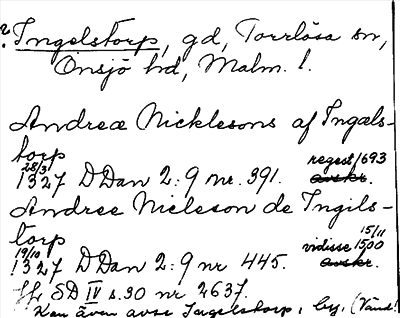 ? Ingelstorp, gd, Torrlösa sn,
Onsjö hd, Malm. l.
Andreæ Nicklesons af Ingæls-
torp
28/3 1327 D Dan 2:9 nr. 391. regest 1693 avskr.
Andree Nielsson de Ingils-
torp
19/10 1327 D Dan 2:9 nr 445. vidisse 15/11 1500 avskr.
Jfr SD IV s. 30 nr 2637.
Kan även avse Ingelstorp, by, (Vänd!